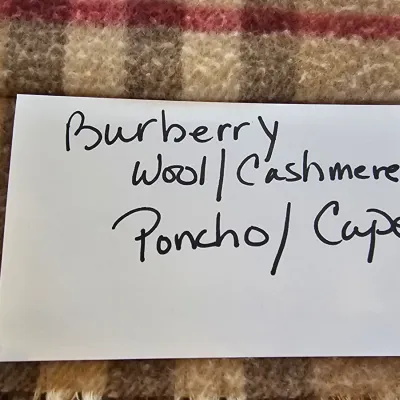 Burberry
Wool/Cashmere
Poncho/Cape